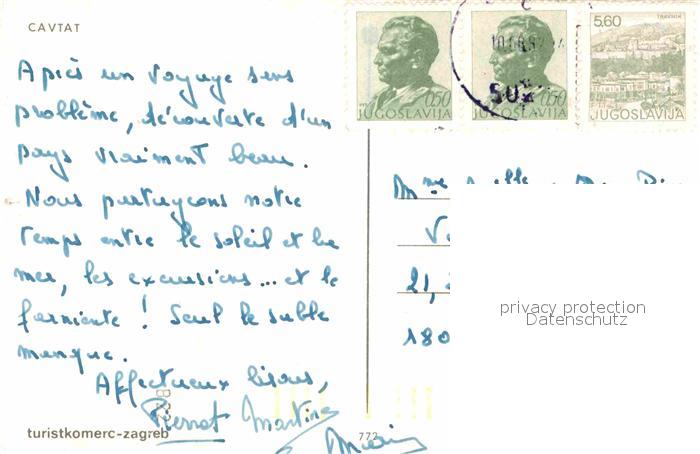 CAVTAT
Après un voyage sans
problème, découverte d'un
pays vraiment beau.
Nous partageons notre
temps entre le soleil et la
mer, les excursions... et le
farniente ! Seul le sable
manque.
Affectueux bisous,
Pierrot Martine
turistkomerc-zagreb
772
0,50
JUGOSLAVIJA
0,50
JUGOSLAVIJA
5,60
TRAVNIK
JUGOSLAVIJA
Mme
21,
180
privacy protection
Datenschutz